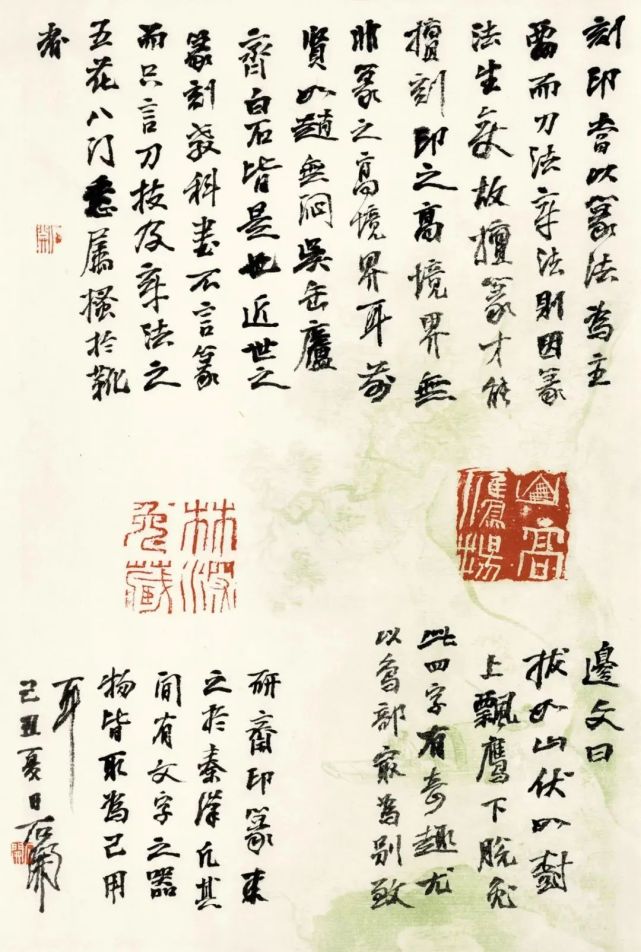 刻印當以篆法為主
要而刀法章法則因篆
法生矣故擅篆才能
擅刻印之高境界無
非篆之高境界耳前
賢如趙無悶吳缶廬
齊白石皆是也近世之
篆刻教科書不言篆
而只言刀技及章法之
五花八门悉属搔於靴
者
石開
山高
鷹揚
林深
兔藏
邊文曰
拔如山伏如封
上飄鷹下脫兔
此四字有奇趣尤
以鳥部最為別致
研齋印篆來
之於秦漢凡其
間有文字之器
物皆取為己用
耳
己丑夏日石開